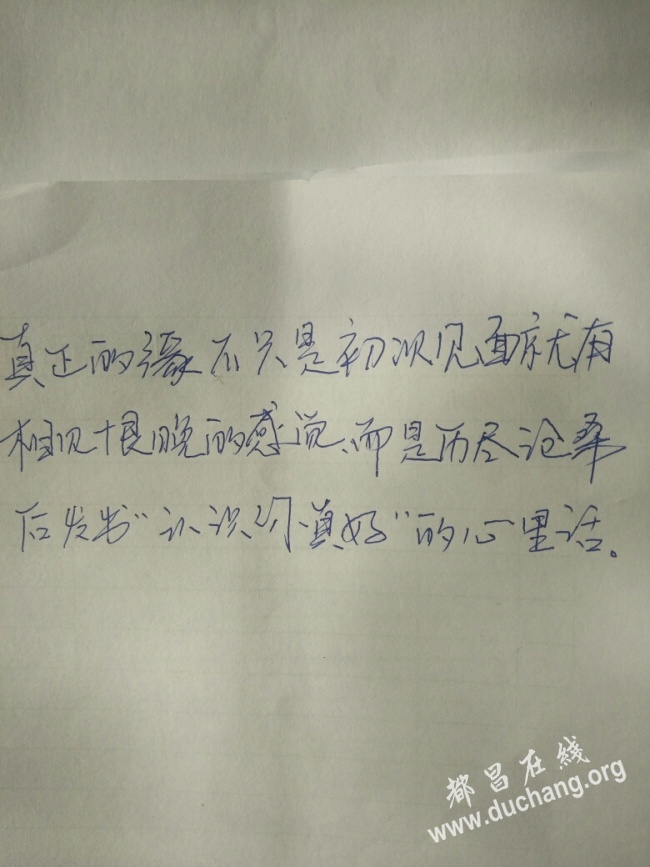 真正的缘不只是初次见面就有
相见恨晚的感觉、而是历尽沧桑
后发出“认识你真好”的心里话。
都昌在线
www.duchang.org